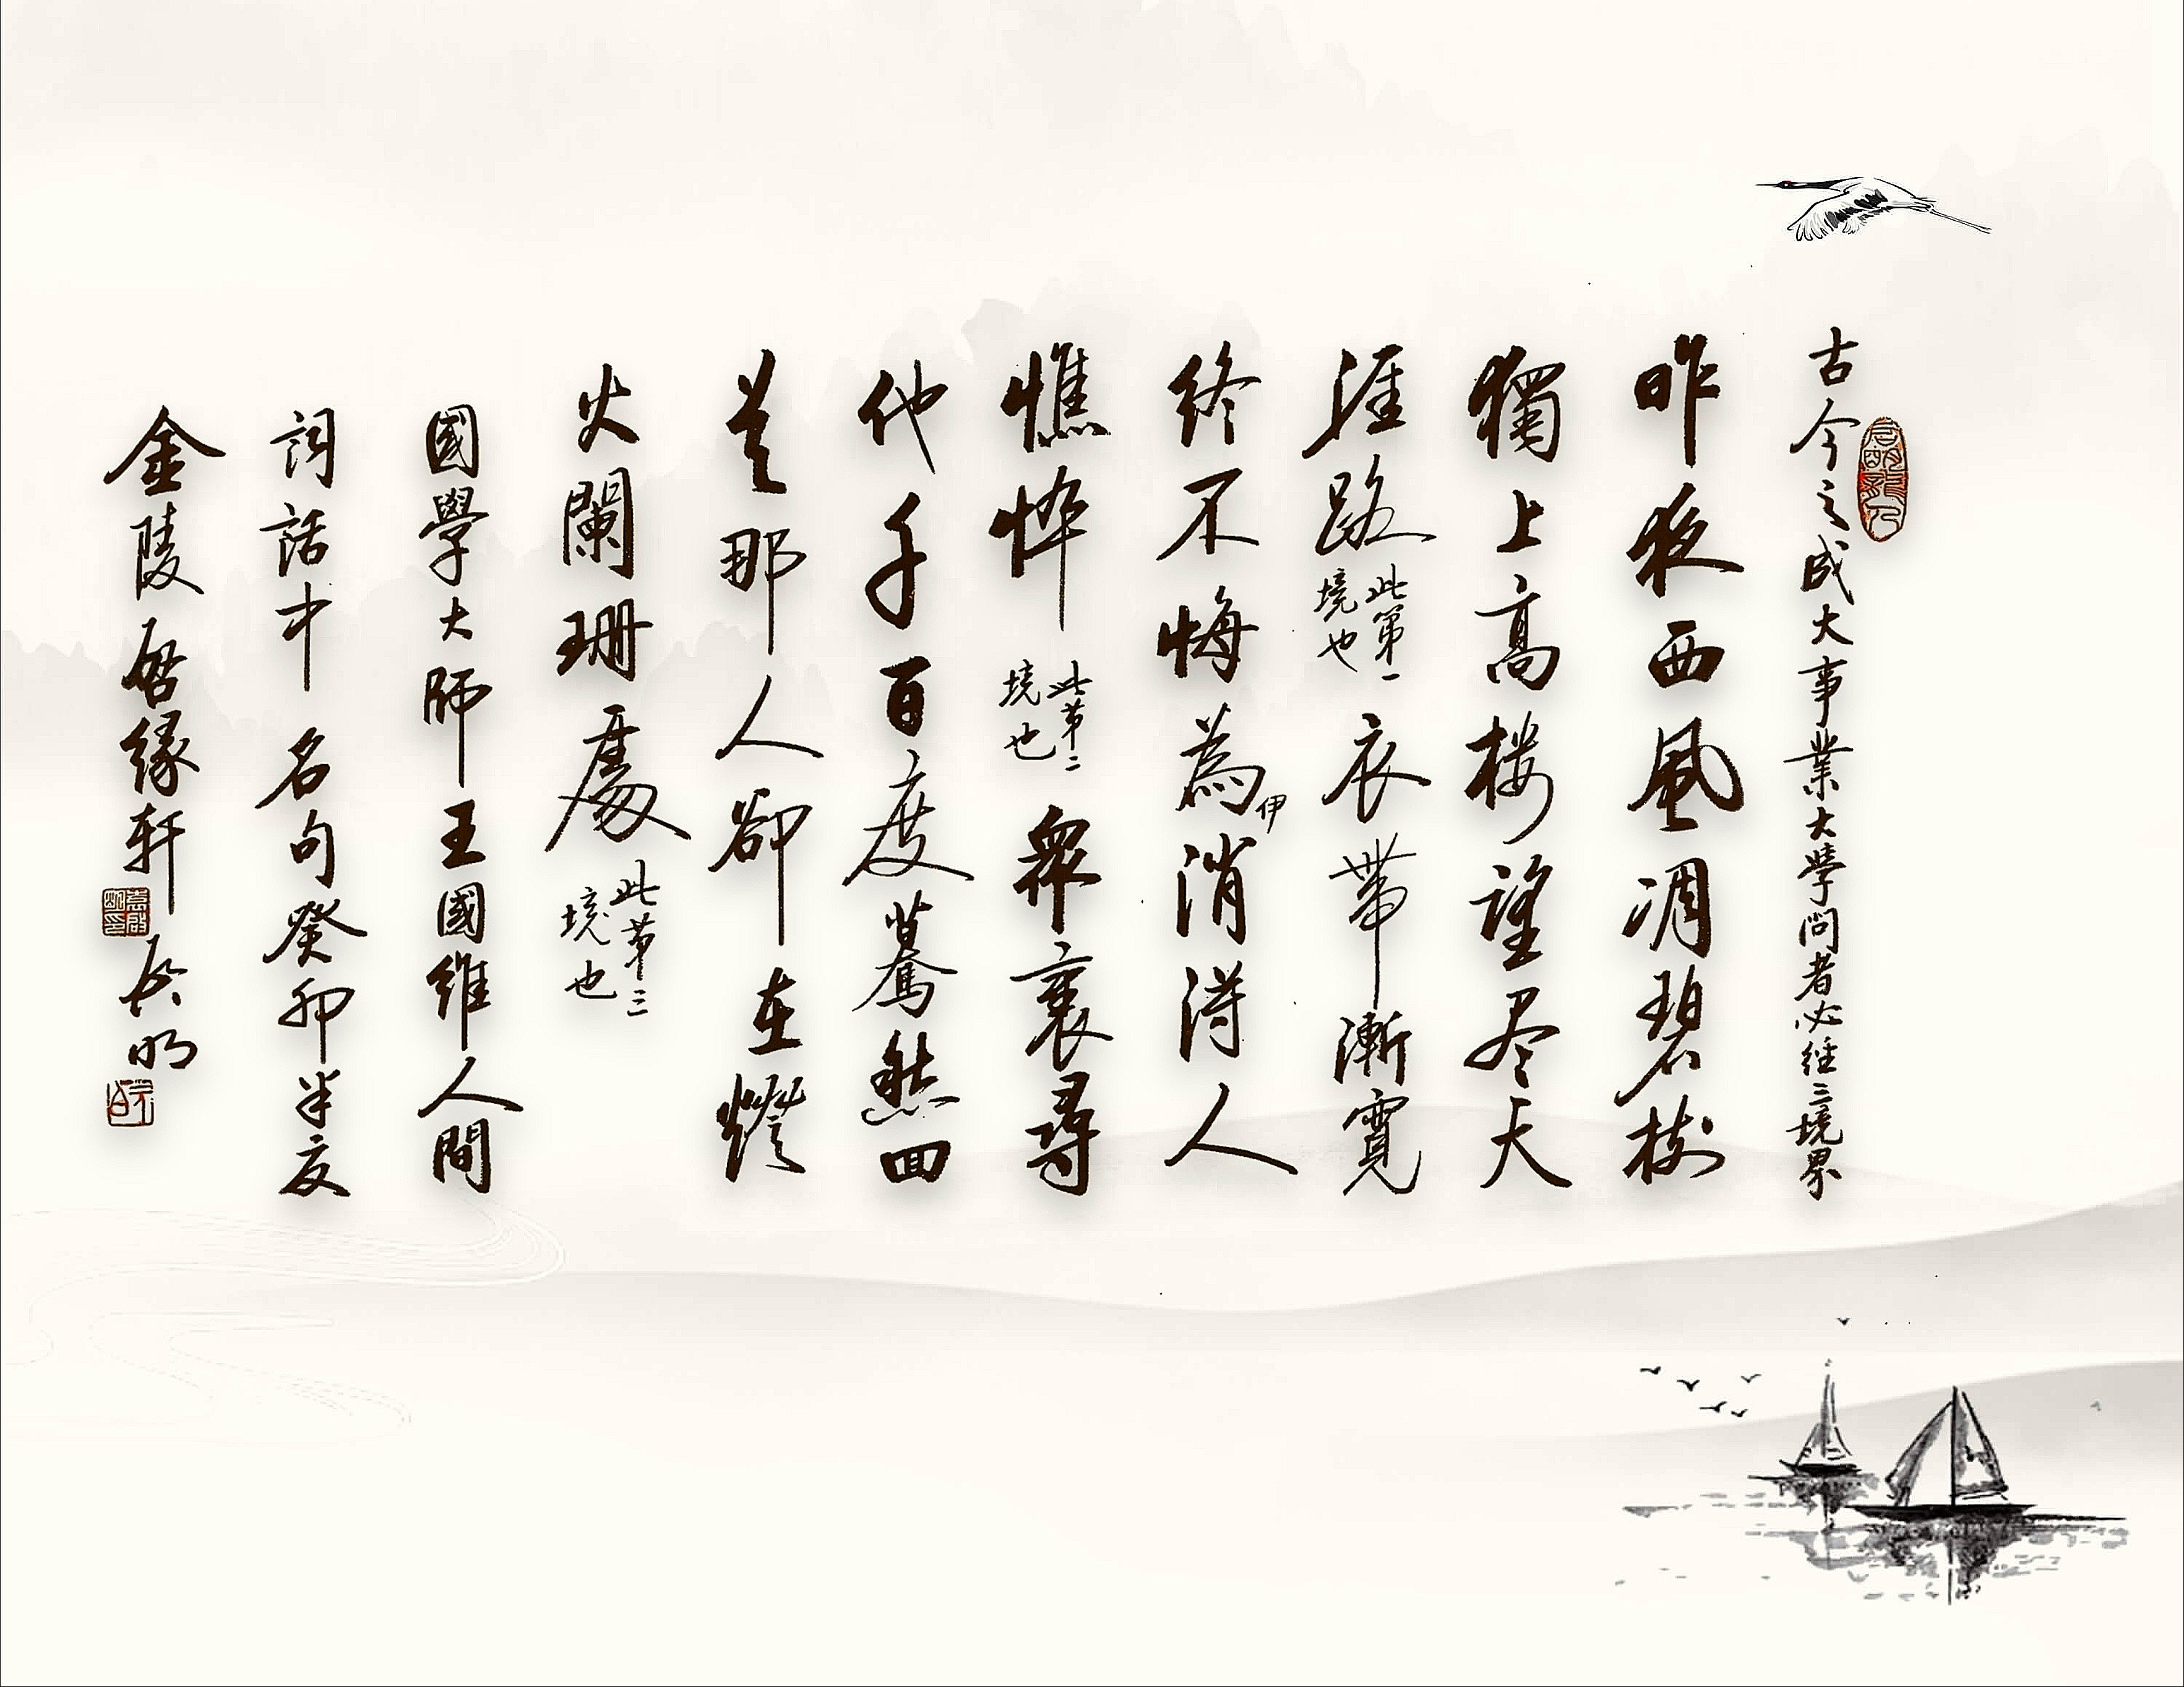 古今之成大事業大學問者必經三境界
昨夜西風凋碧樹
獨上高楼望尽天
涯路此第一境也衣帶漸寬
終不悔為伊消得人
憔悴此第二境也衆裏尋
他千百度驀然回
首那人卻在燈
火闌珊處此第三境也
國學大師王國維人間
詞話中名句癸卯半夏
金陵啓缘轩啟明